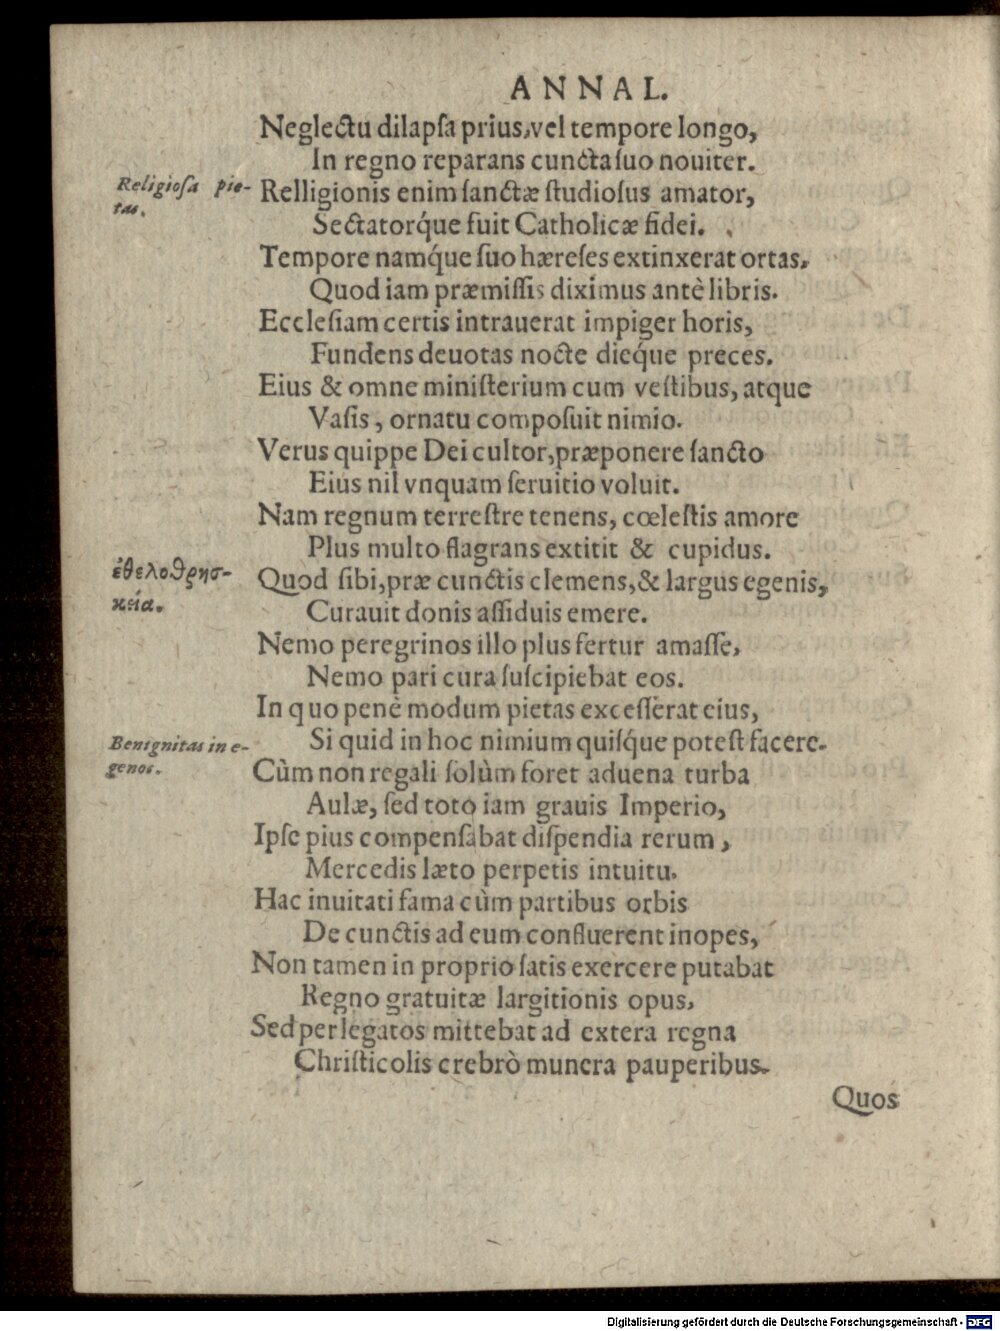 ANNAL.
Neglectu dilapſa prius, vel tempore longo,
In regno reparans cuncta ſuo nouiter.
Religioſa pie-
tas.
Relligionis enim ſanctæ ſtudioſus amator,
Sectatorq́ue fuit Catholicæ fidei.
Tempore namq́ue ſuo hæreſes extinxerat ortas,
Quod iam præmiſſis diximus antè libris.
Eccleſiam certis intrauerat impiger horis,
Fundens deuotas nocte dieq́ue preces.
Eius & omne miniſterium cum veſtibus, atque
Vaſis, ornatu compoſuit nimio.
Verus quippe Dei cultor, præponere ſancto
Eius nil vnquam ſeruitio voluit.
Nam regnum terreſtre tenens, cœleſtis amore
Plus multo flagrans extitit & cupidus.
ἐθελοθρησ-
κεία.
Quòd ſibi, præ cunctis clemens, & largus egenis,
Curauit donis aſſiduis emere.
Nemo peregrinos illo plus fertur amaſſe,
Nemo pari cura ſuſcipiebat eos.
In quo penè modum pietas exceſſerat eius,
Si quid in hoc nimium quiſq́ue poteſt facere.
Benignitas in e-
genos.
Cùm non regali ſolùm foret aduena turba
Aulæ, ſed toto iam grauis Imperio,
Ipſe pius compenſabat diſpendia rerum,
Mercedis læto perpetis intuitu.
Hac inuitati fama cùm partibus orbis
De cunctis ad eum confluerent inopes,
Non tamen in proprio ſatis exercere putabat
Regno gratuitæ largitionis opus,
Sed per legatos mittebat ad extera regna
Chriſticolis crebrò munera pauperibus.
Quos
Digitalisierung gefördert durch die Deutsche Forschungsgemeinschaft - DFG